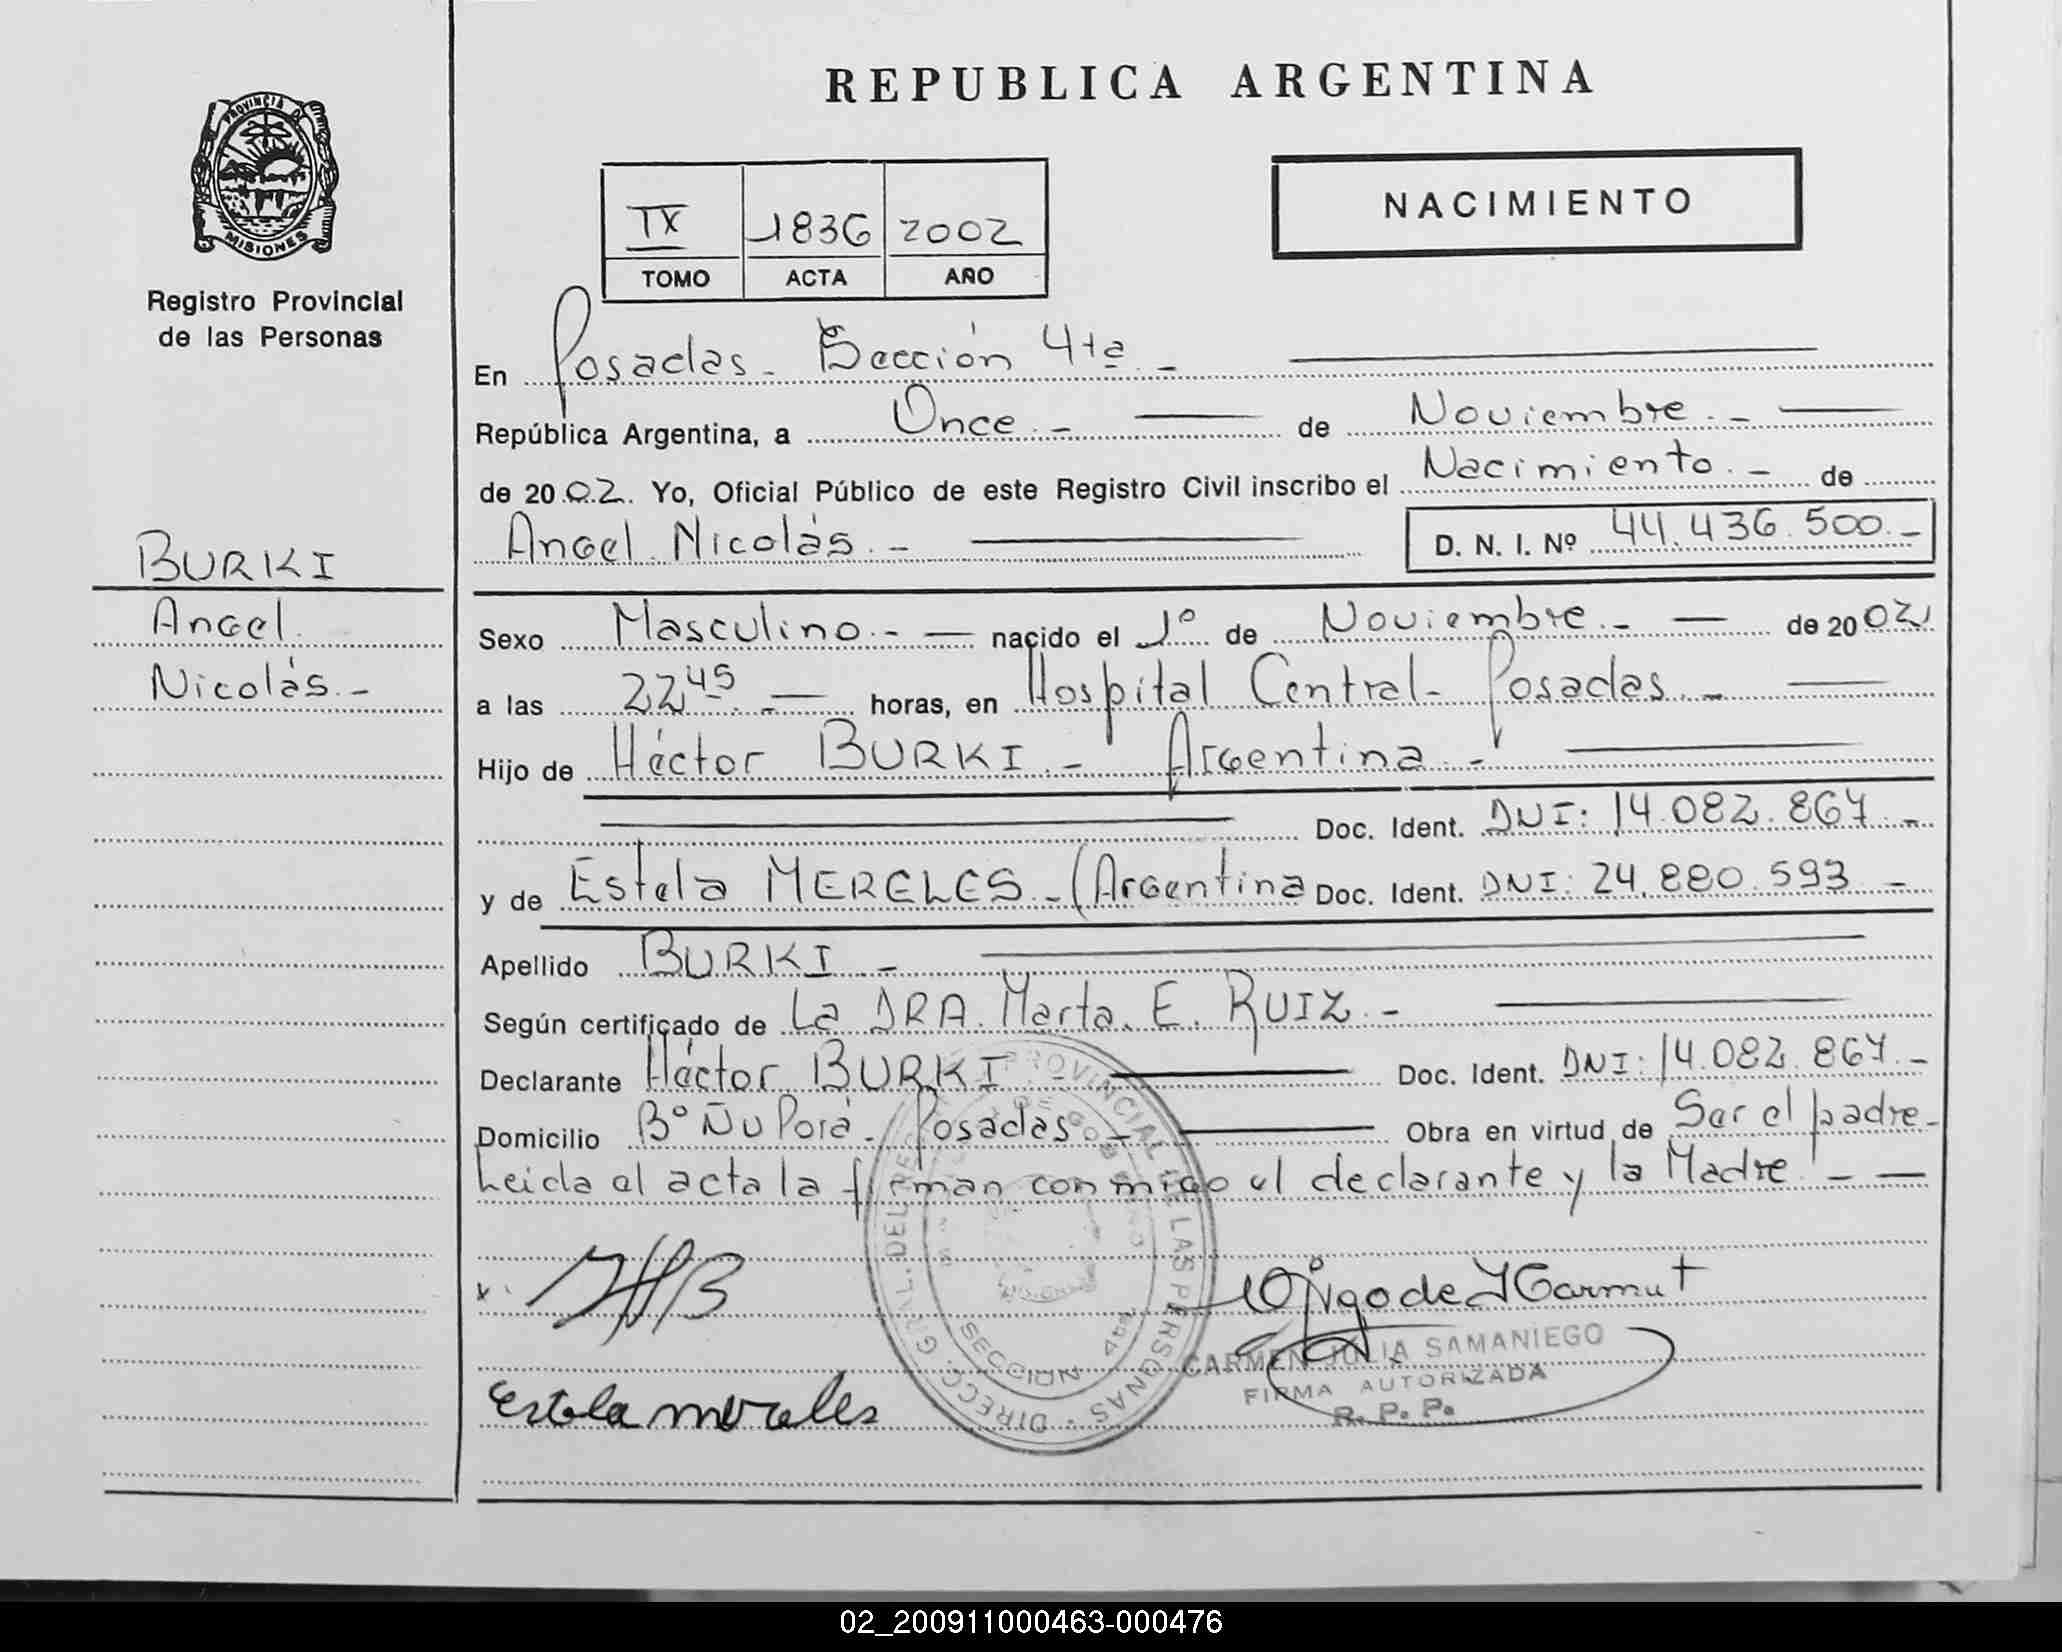 REPUBLICA ARGENTINA
PROVINCIA DE
MISIONES
Registro Provincial
de las Personas
IX 1836 2002
TOMO ACTA AÑO
NACIMIENTO
En Posadas - Sección 4ta. -
República Argentina, a Once. - de Noviembre. -
de 2002. Yo, Oficial Público de este Registro Civil inscribo el Nacimiento. - de
Angel Nicolás. - D. N. I. Nº 44.436.500. -
BURKI
Angel
Nicolás. -
Sexo Masculino. - nacido el 1º de Noviembre. - de 2002
a las 22 45. - horas, en Hospital Central - Posadas. -
Hijo de Héctor BURKI. - Argentina. -
Doc. Ident. DNI: 14.082.867. -
y de Estela MERELES. - (Argentina Doc. Ident. DNI: 24.880.593 -
Apellido BURKI. -
Según certificado de La DRA. Marta. E. RUIZ. -
Declarante Héctor BURKI. - Doc. Ident. DNI: 14.082.867. -
Domicilio Bº Ñu Porá. Posadas. - Obra en virtud de Ser el padre -
Leida el acta la firman conmigo el declarante y la Madre. -
DIRECC. GRAL. DEL REG. PROVINCIAL DE LAS PERSONAS
SECCION 4ta
Estela mereles
CARMEN JULIA SAMANIEGO
FIRMA AUTORIZADA
R. P. P.
02_200911000463-000476